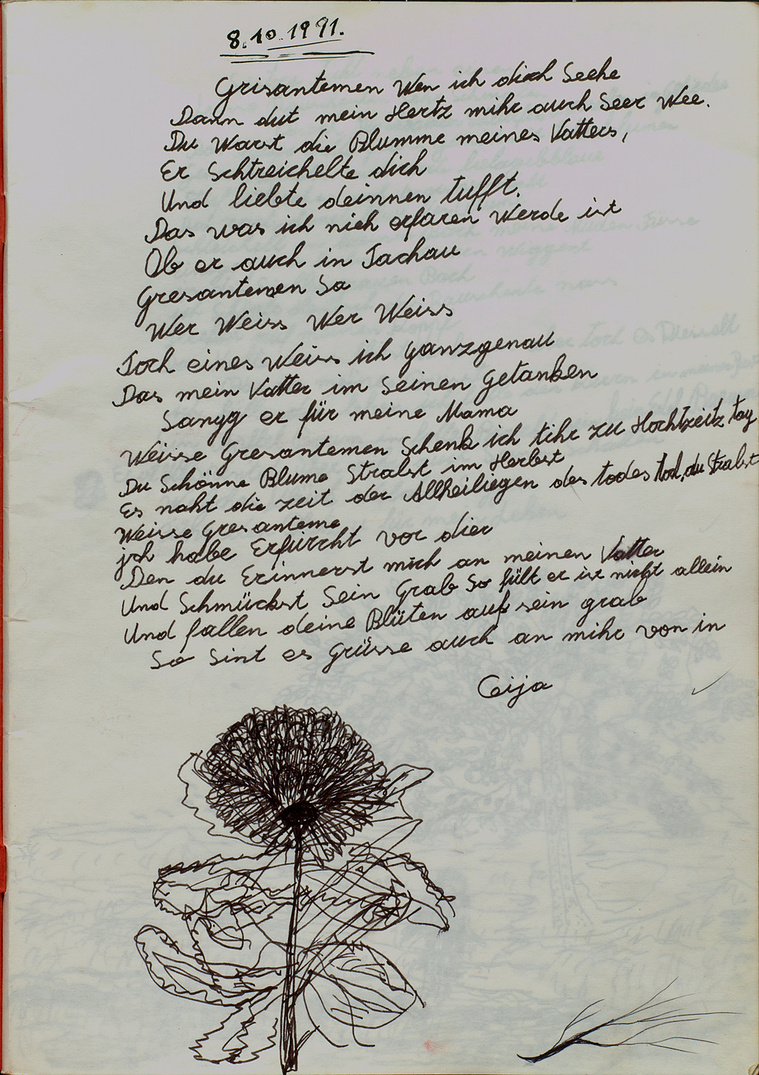 8.10.1991.
Grisantemen Wen ich dich Seehe
Dann dut mein Hertz mihr auch Seer Wee.
Du Warst die Blumme meines Vatters,
Er Schtreichelte dich
Und liebte deinnen tufft.
Das was ich nieh erfaren Werde ist
Ob er auch in Tachau
Gresantemen Sa
Wer Weiss Wer Weiss
Toch eines Weiss ich ganzgenau
Das mein Vatter im Seinen Getanken
Sangg er für meine Mama
Weisse Gresantemen Schenk ich tihr zu Hochtzeitz tag
Du Schönne Blume Stralst im Herbst
Es naht die zeit der Allheiliegen des todes tod, du Stralst
Weisse Gresanteme
jch habe Erfurcht vor dier
Den du Erinnerst mich an meinen Vatter
Und Schmückst Sein Grab So fült er ist nicht allein
Und fallen deine Blüten auf sein grab
So Sint es Grüsse auch an mihr von in
Ceija